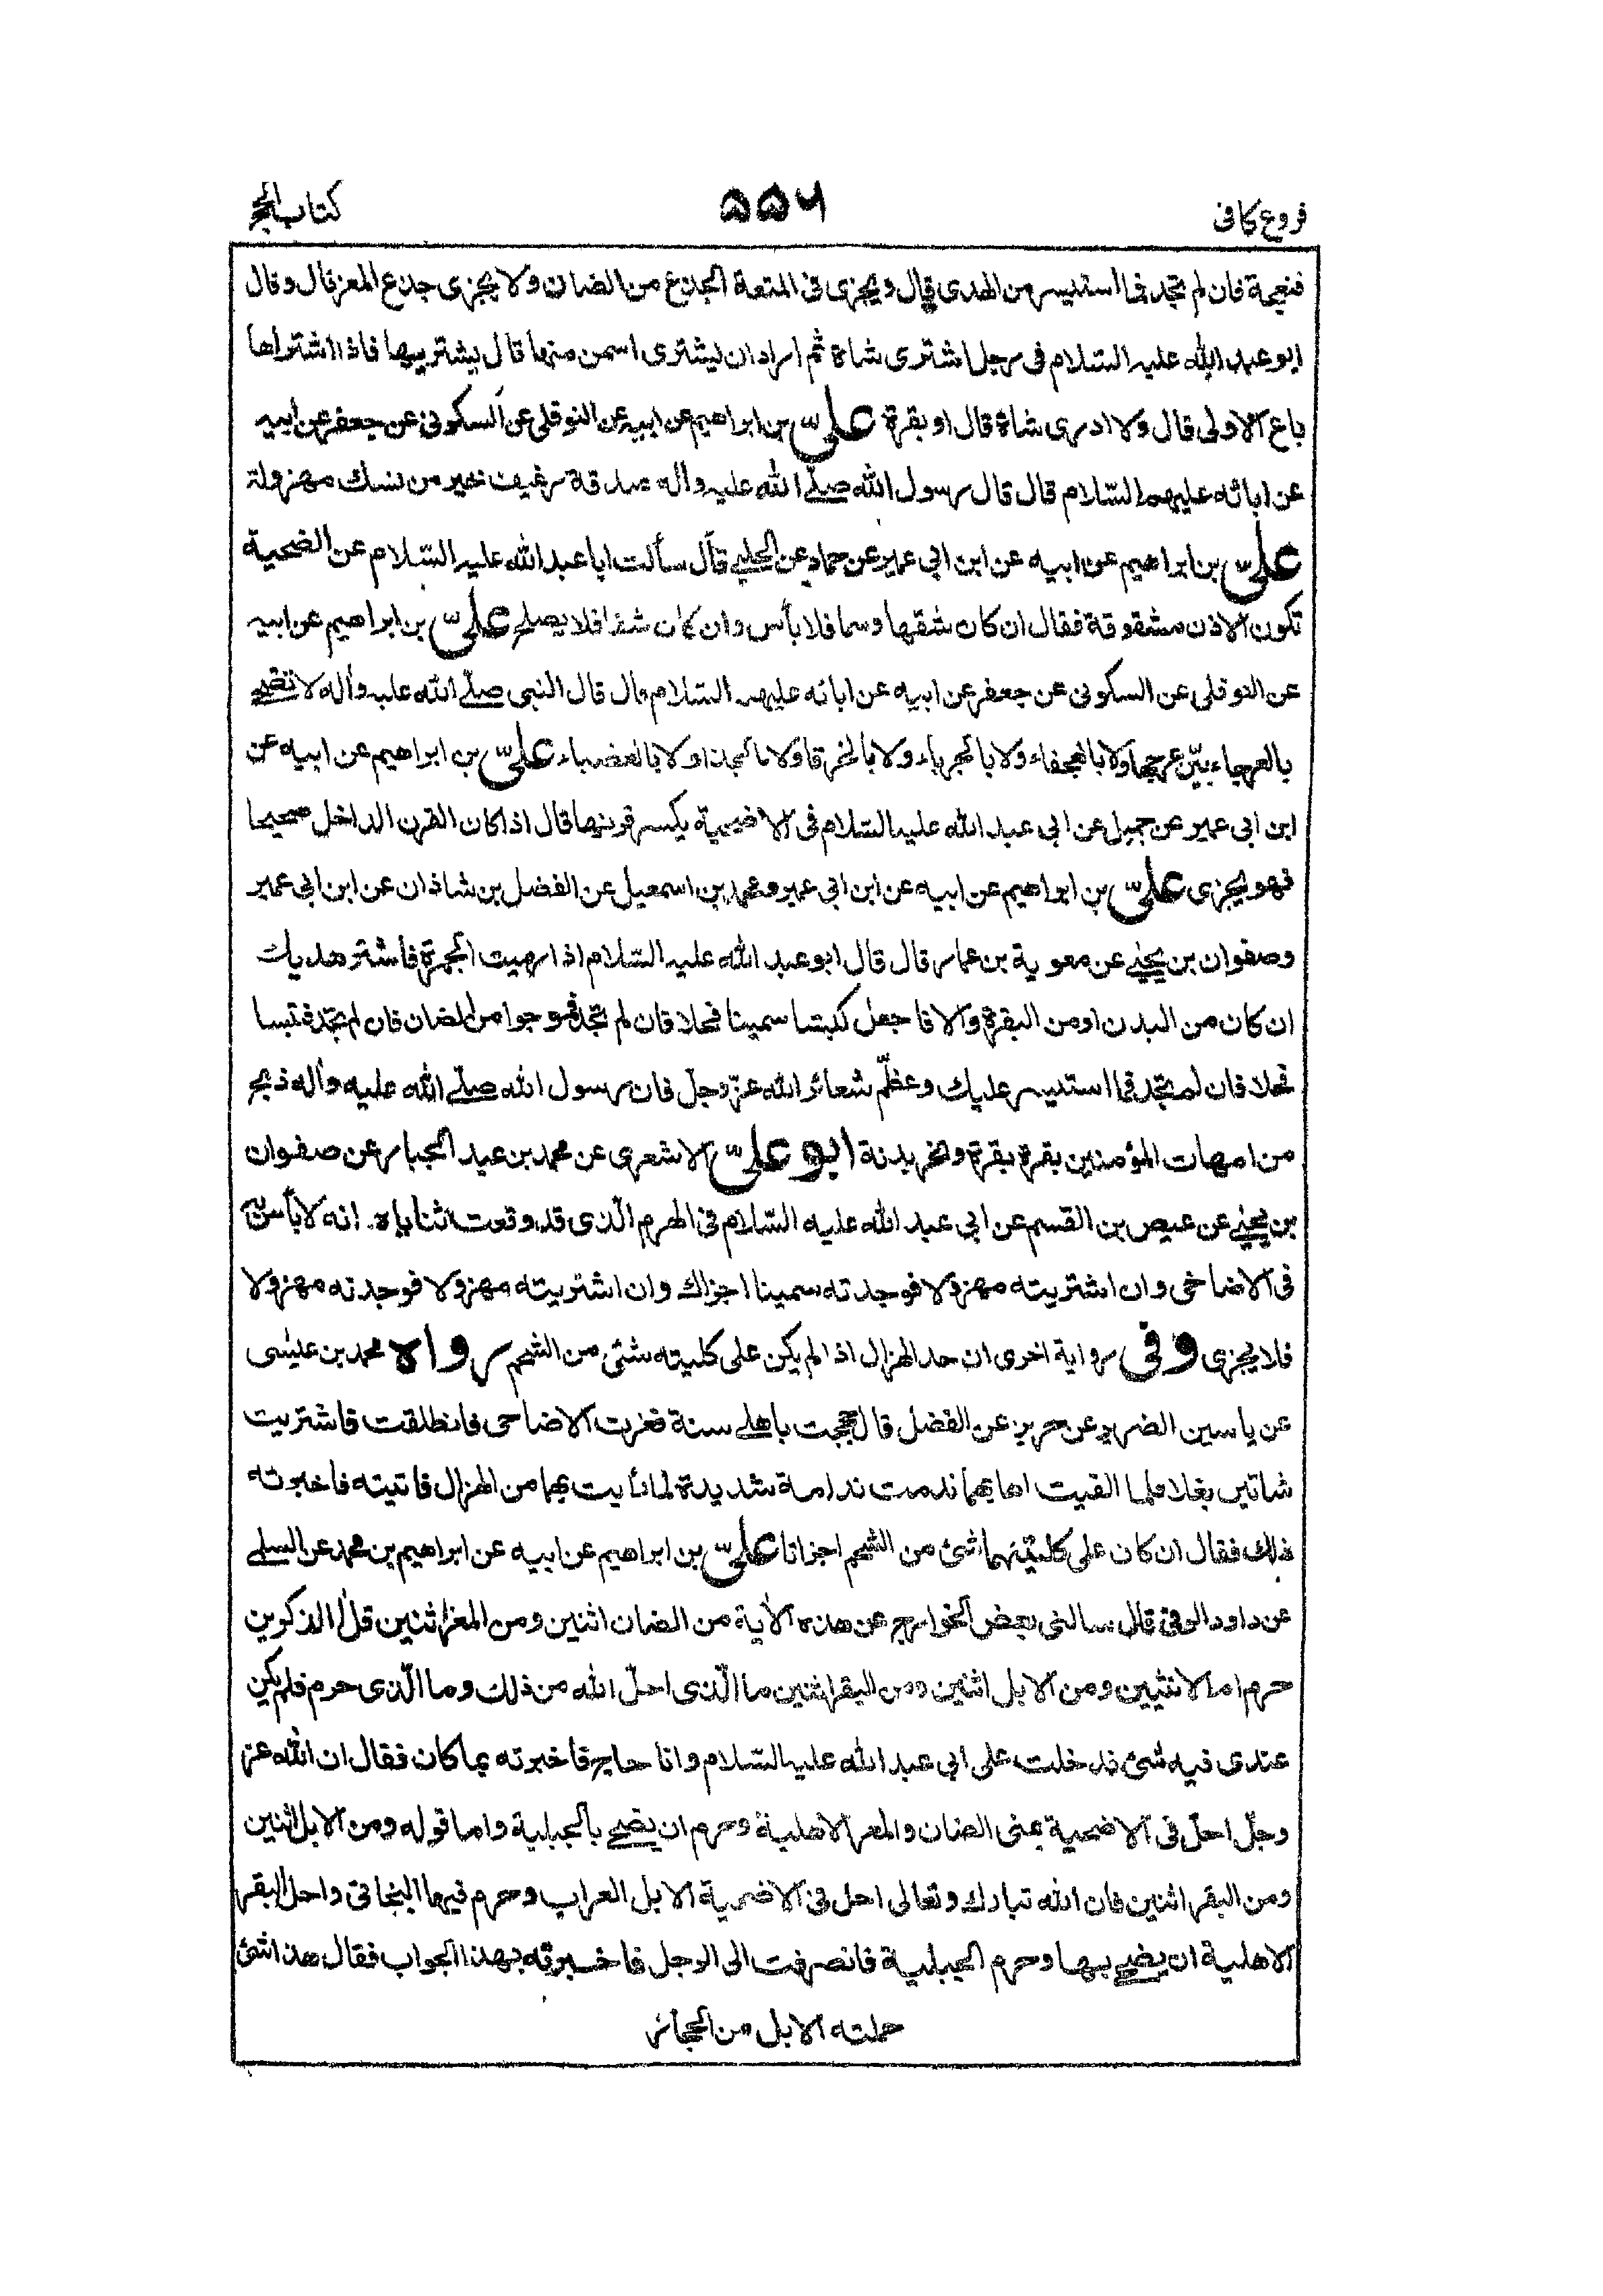 فروع كافى ۵۵۶ كتاب الحج
فنعجة فان لم تجد فما استيسر من الهدى قال ويجزى فى المتعة الجذع من الضان ولا يجزى جذع المعز قال وقال
ابو عبد الله عليه السّلام فى رجل اشترى شاة ثم اراد ان يشترى اسمن منها قال يشتريها فاذا اشتراها
باع الاولى قال ولا ادرى شاة قال او بقرة علىّ بن ابراهيم عن ابيه عن النوفلى عن السكونى عن جعفر عن ابيه
عن ابائه عليهم السّلام قال قال رسول الله صلّے الله عليه واله صدقة رغيف خير من نسك مهزولة
علىّ بن ابراهيم عن ابيه عن ابن ابى عمير عن حماد عن الحلبے قال سألت ابا عبد الله عليه السّلام عن الضحية
تكون الاذن مشقوقة فقال ان كان شقها وسما فلا بأس وان كان شقا فلا يصلح علىّ بن ابراهيم عن ابيه
عن النوفلى عن السكونى عن جعفر عن ابيه عن ابائه عليهم السّلام قال قال النبى صلّے الله عليه واله لا تضحے
بالعرجاء بيّن عرجها ولا بالعجفاء ولا بالجرباء ولا بالخرقا ولا بالجذا ولا بالعضباء علىّ بن ابراهيم عن ابيه عن
ابن ابى عمير عن جميل عن ابى عبد الله عليه السّلام فى الاضحية يكسر قرنها قال اذا كان القرن الداخل صحيحا
فهو يجزى علىّ بن ابراهيم عن ابيه عن ابن ابى عمير ومحمد بن اسمعيل عن الفضل بن شاذان عن ابن ابى عمير
وصفوان بن يحيے عن معوية بن عمار قال قال ابو عبد الله عليه السّلام اذا رميت الجمرة فاشتر هديك
ان كان من البدن او من البقرة والا فاجعل كبشا سمينا فحلا فان لم تجد فموجوا من الضان فان لم تجد فتيسا
فحلا فان لم تجد فما استيسر عليك وعظّم شعائر الله عزّ وجلّ فان رسول الله صلّے الله عليه واله ذبح
من امهات المؤمنين بقرة بقرة ونحر بدنة ابو علىّ الاشعرى عن محمد بن عبد الجبار عن صفوان
بن يحيے عن عيص بن القسم عن ابى عبد الله عليه السّلام فى الهرم الّذى قد وقعت ثناياه انه لا بأس به
فى الاضاحى وان اشتريته مهزولا فوجدته سمينا اجزاك وان اشتريته مهزولا فوجدته مهزولا
فلا يجزى وفى رواية اخرى ان حد الهزال اذا لم يكن على كليته شئى من الشحم رواه محمد بن عيسٰى
عن ياسين الضرير عن حريز عن الفضل قال حججت باهلے سنة فعزت الاضاحى فانطلقت فاشتريت
شاتين بغلا فلما القيت اهابهما ندمت ندامة شديدة لما رأيت بهما من الهزال فاتيته فاخبرته
ذلك فقال ان كان على كليتيهما شئ من الشحم اجزاتا علىّ بن ابراهيم عن ابيه عن ابراهيم بن محمد عن السلمے
عن داود الرقى قال سالنى بعض الخوارج عن هذه الاية من الضان اثنين ومن المعز اثنين قل الذكرين
حرم اما الانثيين ومن الابل اثنين ومن البقر اثنين ما الّذى احلّ الله من ذلك وما الّذى حرم فلم يكن
عندى فيه شئ فدخلت على ابى عبد الله عليه السّلام وانا حاج فاخبرته بما كان فقال ان الله عز
وجلّ احلّ فى الاضحية بمنى الضان والمعز الاهلية وحرم ان يضحے بالجبلية واما قوله ومن الابل اثنين
ومن البقر اثنين فان الله تبارك وتعالى احل فى الاضحية الابل العراب وحرم فيها البخاتى واحل البقر
الاهلية ان يضحے بها وحرم الجبلية فانصرفت الى الرجل فاخبرته بهذا الجواب فقال هذا شئ
حملته الابل من الحجاز